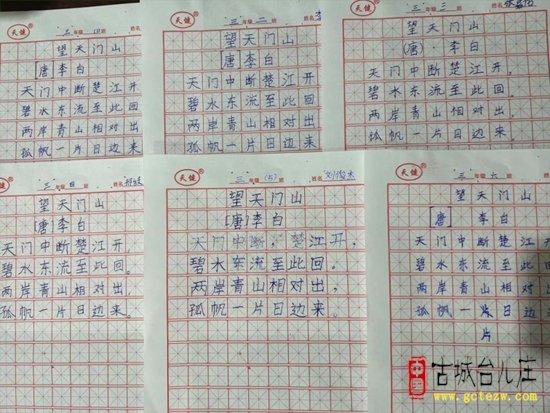 天健®
三 年级 (1) 班 姓名
望天门山
[唐]李白
天门中断楚江开,
碧水东流至此回。
两岸青山相对出,
孤帆一片日边来
天健®
三 年级 二 班 姓名
望天门山
[唐]李白
天门中断楚江开
碧水东流至此回
两岸青山相对出
孤帆一片日边来
三 年级 三 班 姓名
望天门山
(唐) 李白
天门中断楚江开,
碧水东流至此回。
两岸青山相对出,
孤帆一片日边来。
三 年级 四 班 姓名
望天门山
[唐]李白
天门中断楚江开,
碧水东流至此回。
两岸青山相对出,
孤帆一片日边来。
天健®
三 年级 (五) 班 姓名
望天门山
[唐]李白
天门中断,楚江开,
碧水东流至此回。
两岸青山相对出,
孤帆一片日边来。
天健®
三 年级 六 班 姓名
望天门山
[唐] 李白
天门中断楚江开
碧水东流至此回
两岸青山相对出
孤帆一片日边来
片
中国
古城台儿庄
www.gctezw.com